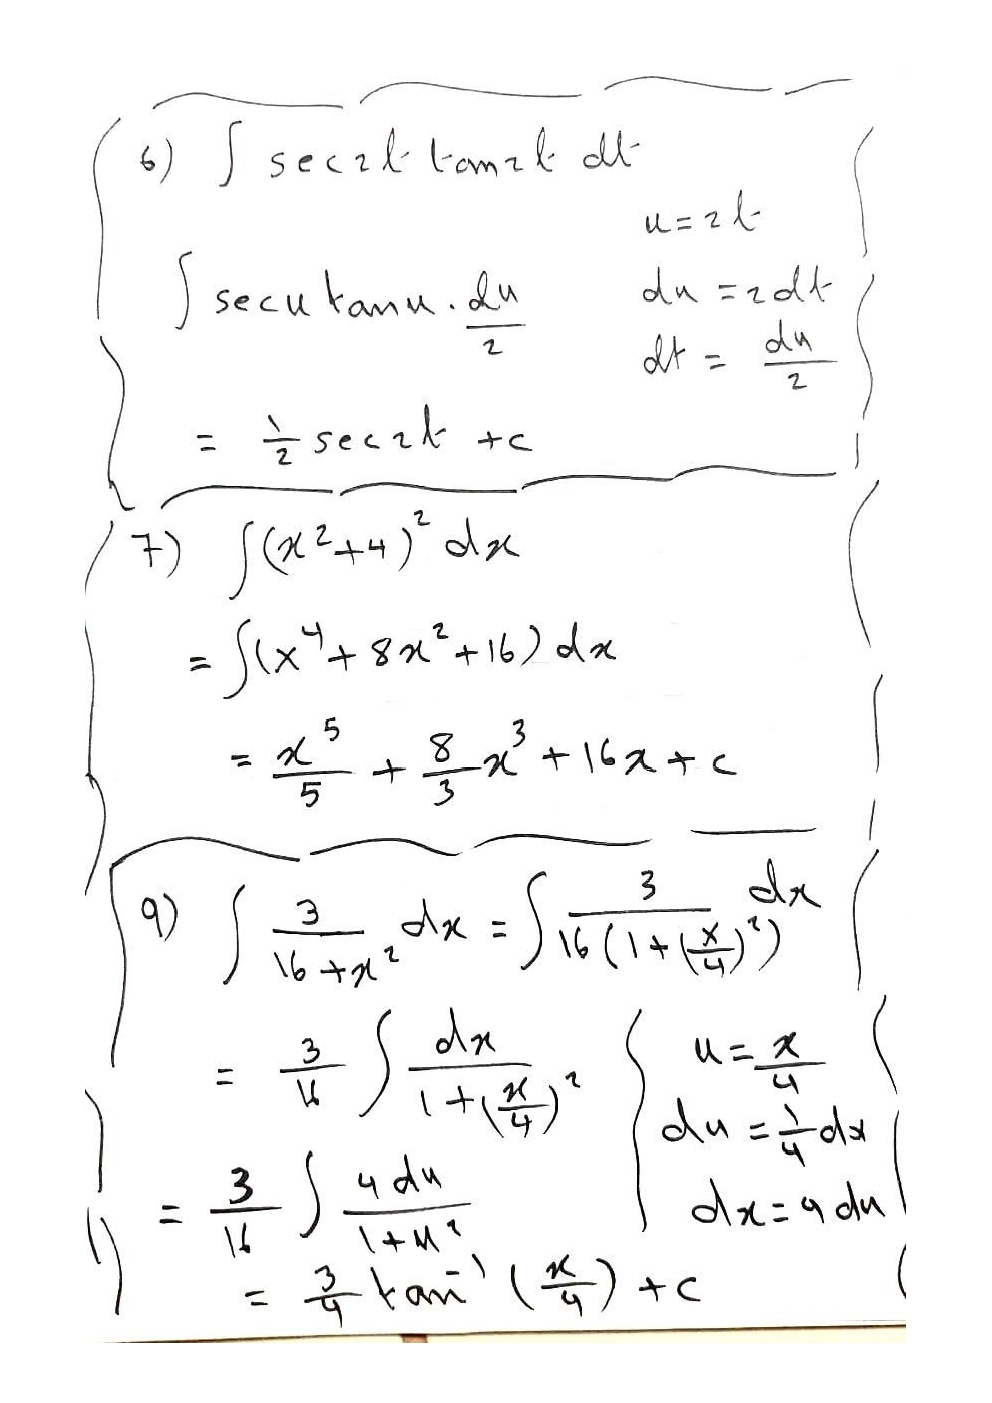 6) ∫ sec2t tan2t dt
u = 2t
∫ sec u tan u . du/2
du = 2dt
dt = du/2
= 1/2 sec2t + c
7) ∫(x²+4)² dx
= ∫(x⁴ + 8x² + 16) dx
= x⁵/5 + 8/3 x³ + 16x + c
9) ∫ 3/(16 + x²) dx = ∫ 3/(16(1 + (x/4)²)) dx
= 3/16 ∫ dx/(1 + (x/4)²)
u = x/4
du = 1/4 dx
= 3/16 ∫ 4 du/(1 + u²)
dx = 4 du
= 3/4 tan⁻¹ (x/4) + c